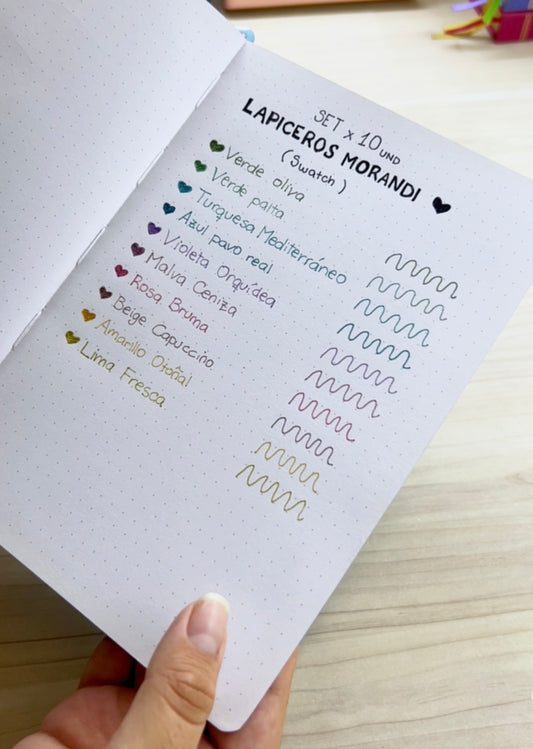 SET x 10 UND
LAPICEROS MORANDI
(Swatch)
Verde oliva
Verde palta
Turquesa Mediterráneo
Azul pavo real
Violeta Orquídea
Malva Ceniza
Rosa Bruma
Beige Capuccino
Amarillo Otoñal
Lima Fresca